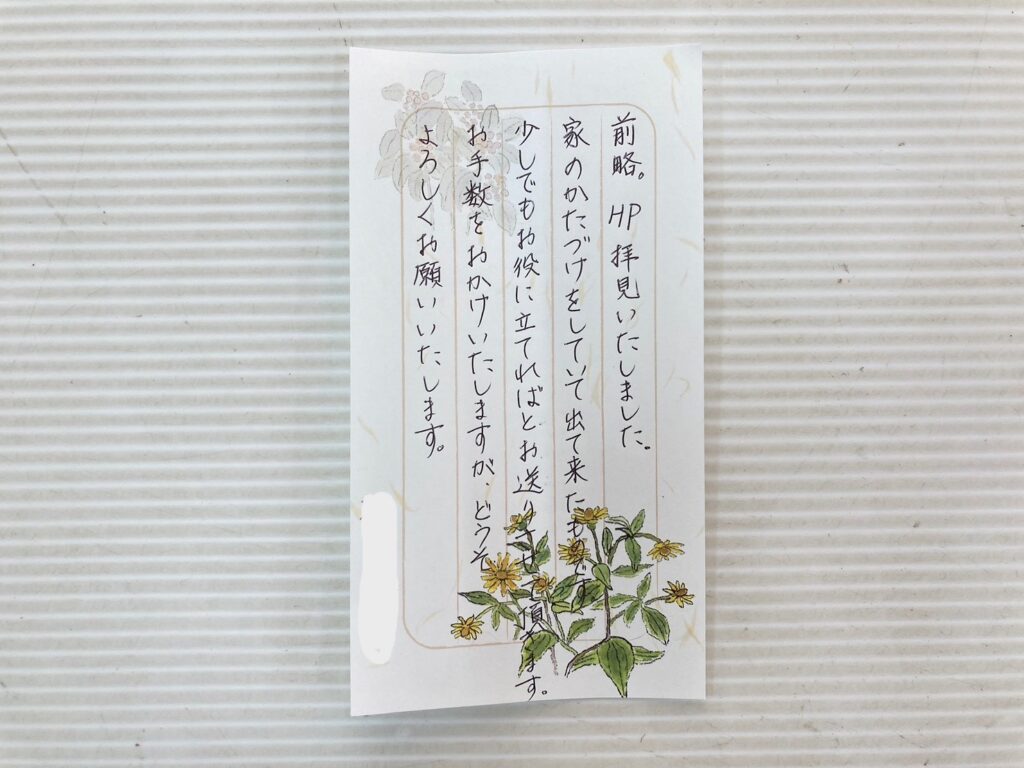 前略。HP拝見いたしました。
家のかたづけをしていて出て来たものです
少しでもお役に立てればとお送りさせて頂きます。
お手数をおかけいたしますが、どうぞ
よろしくお願いいたします。